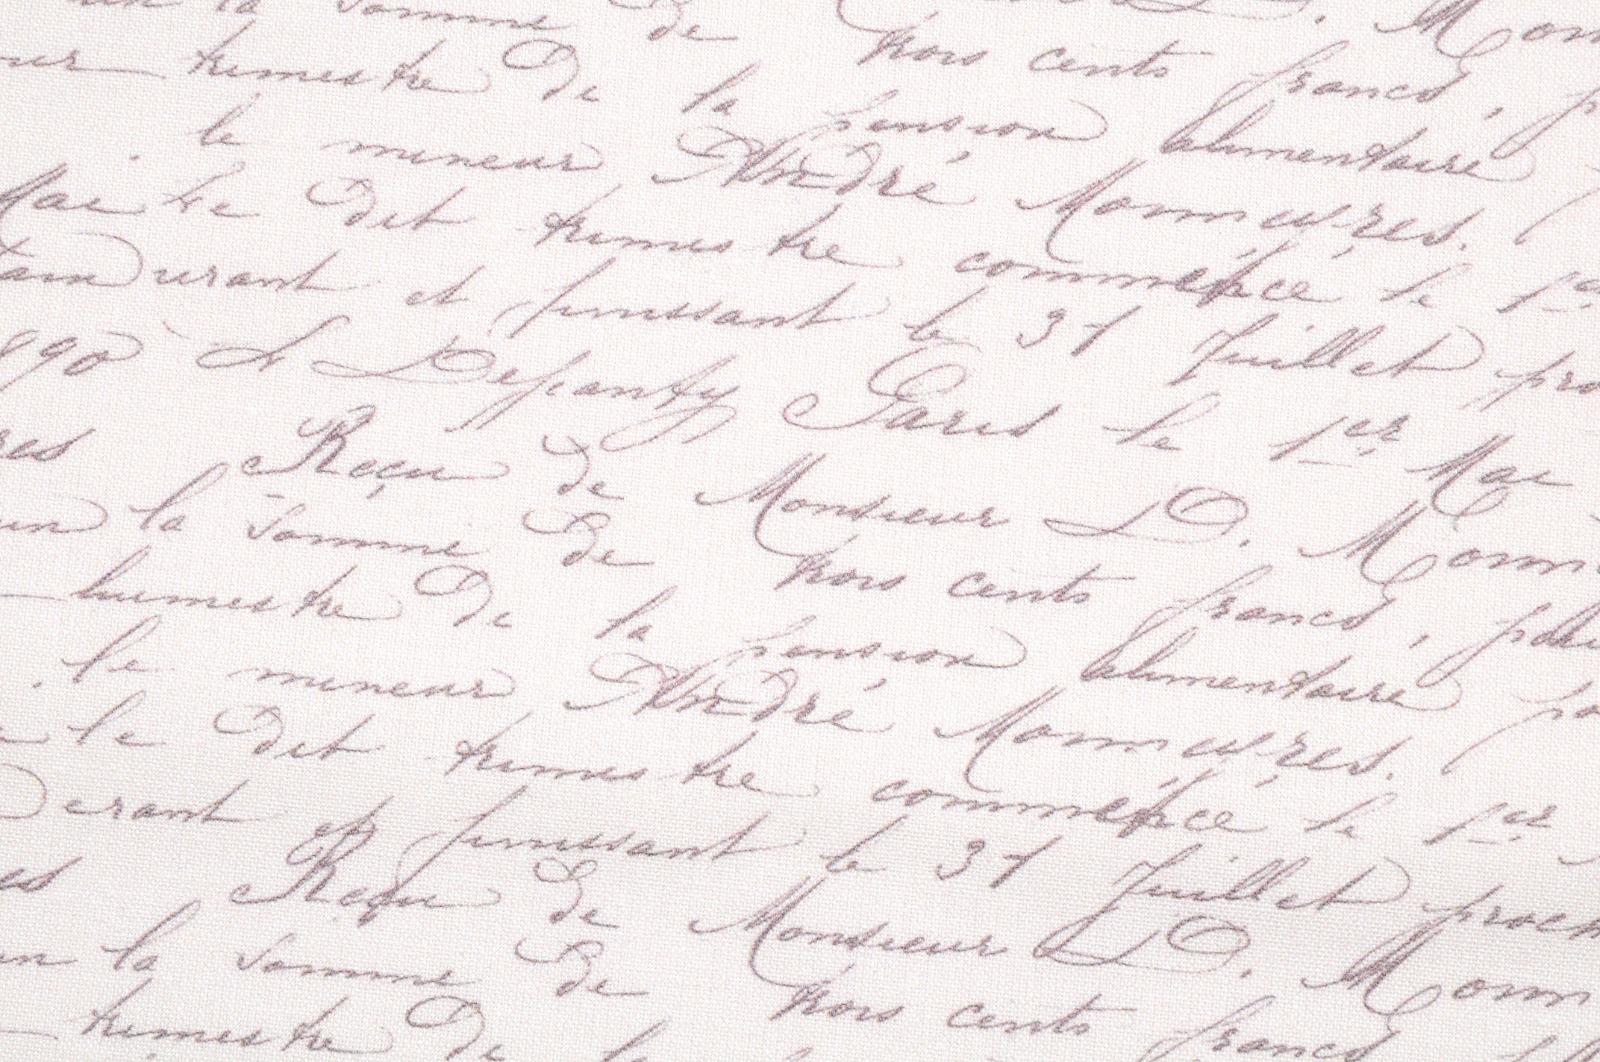 la somme de trois cents francs,
trimestre De la pension alimentaire
le mineur André Monnières.
Mai Le Dit trimestre commence le 1er
courant et finissant le 31 Juillet
1890 Paris le 1er Mai
Reçu De Monsieur D. Monn
la somme De trois cents francs,
trimestre De la pension alimentaire
le mineur André Monnières.
le Dit trimestre commence le 1er
et finissant le 31 Juillet proch
Reçu De Monsieur D. Monn
la somme De trois cents francs
trimestre De